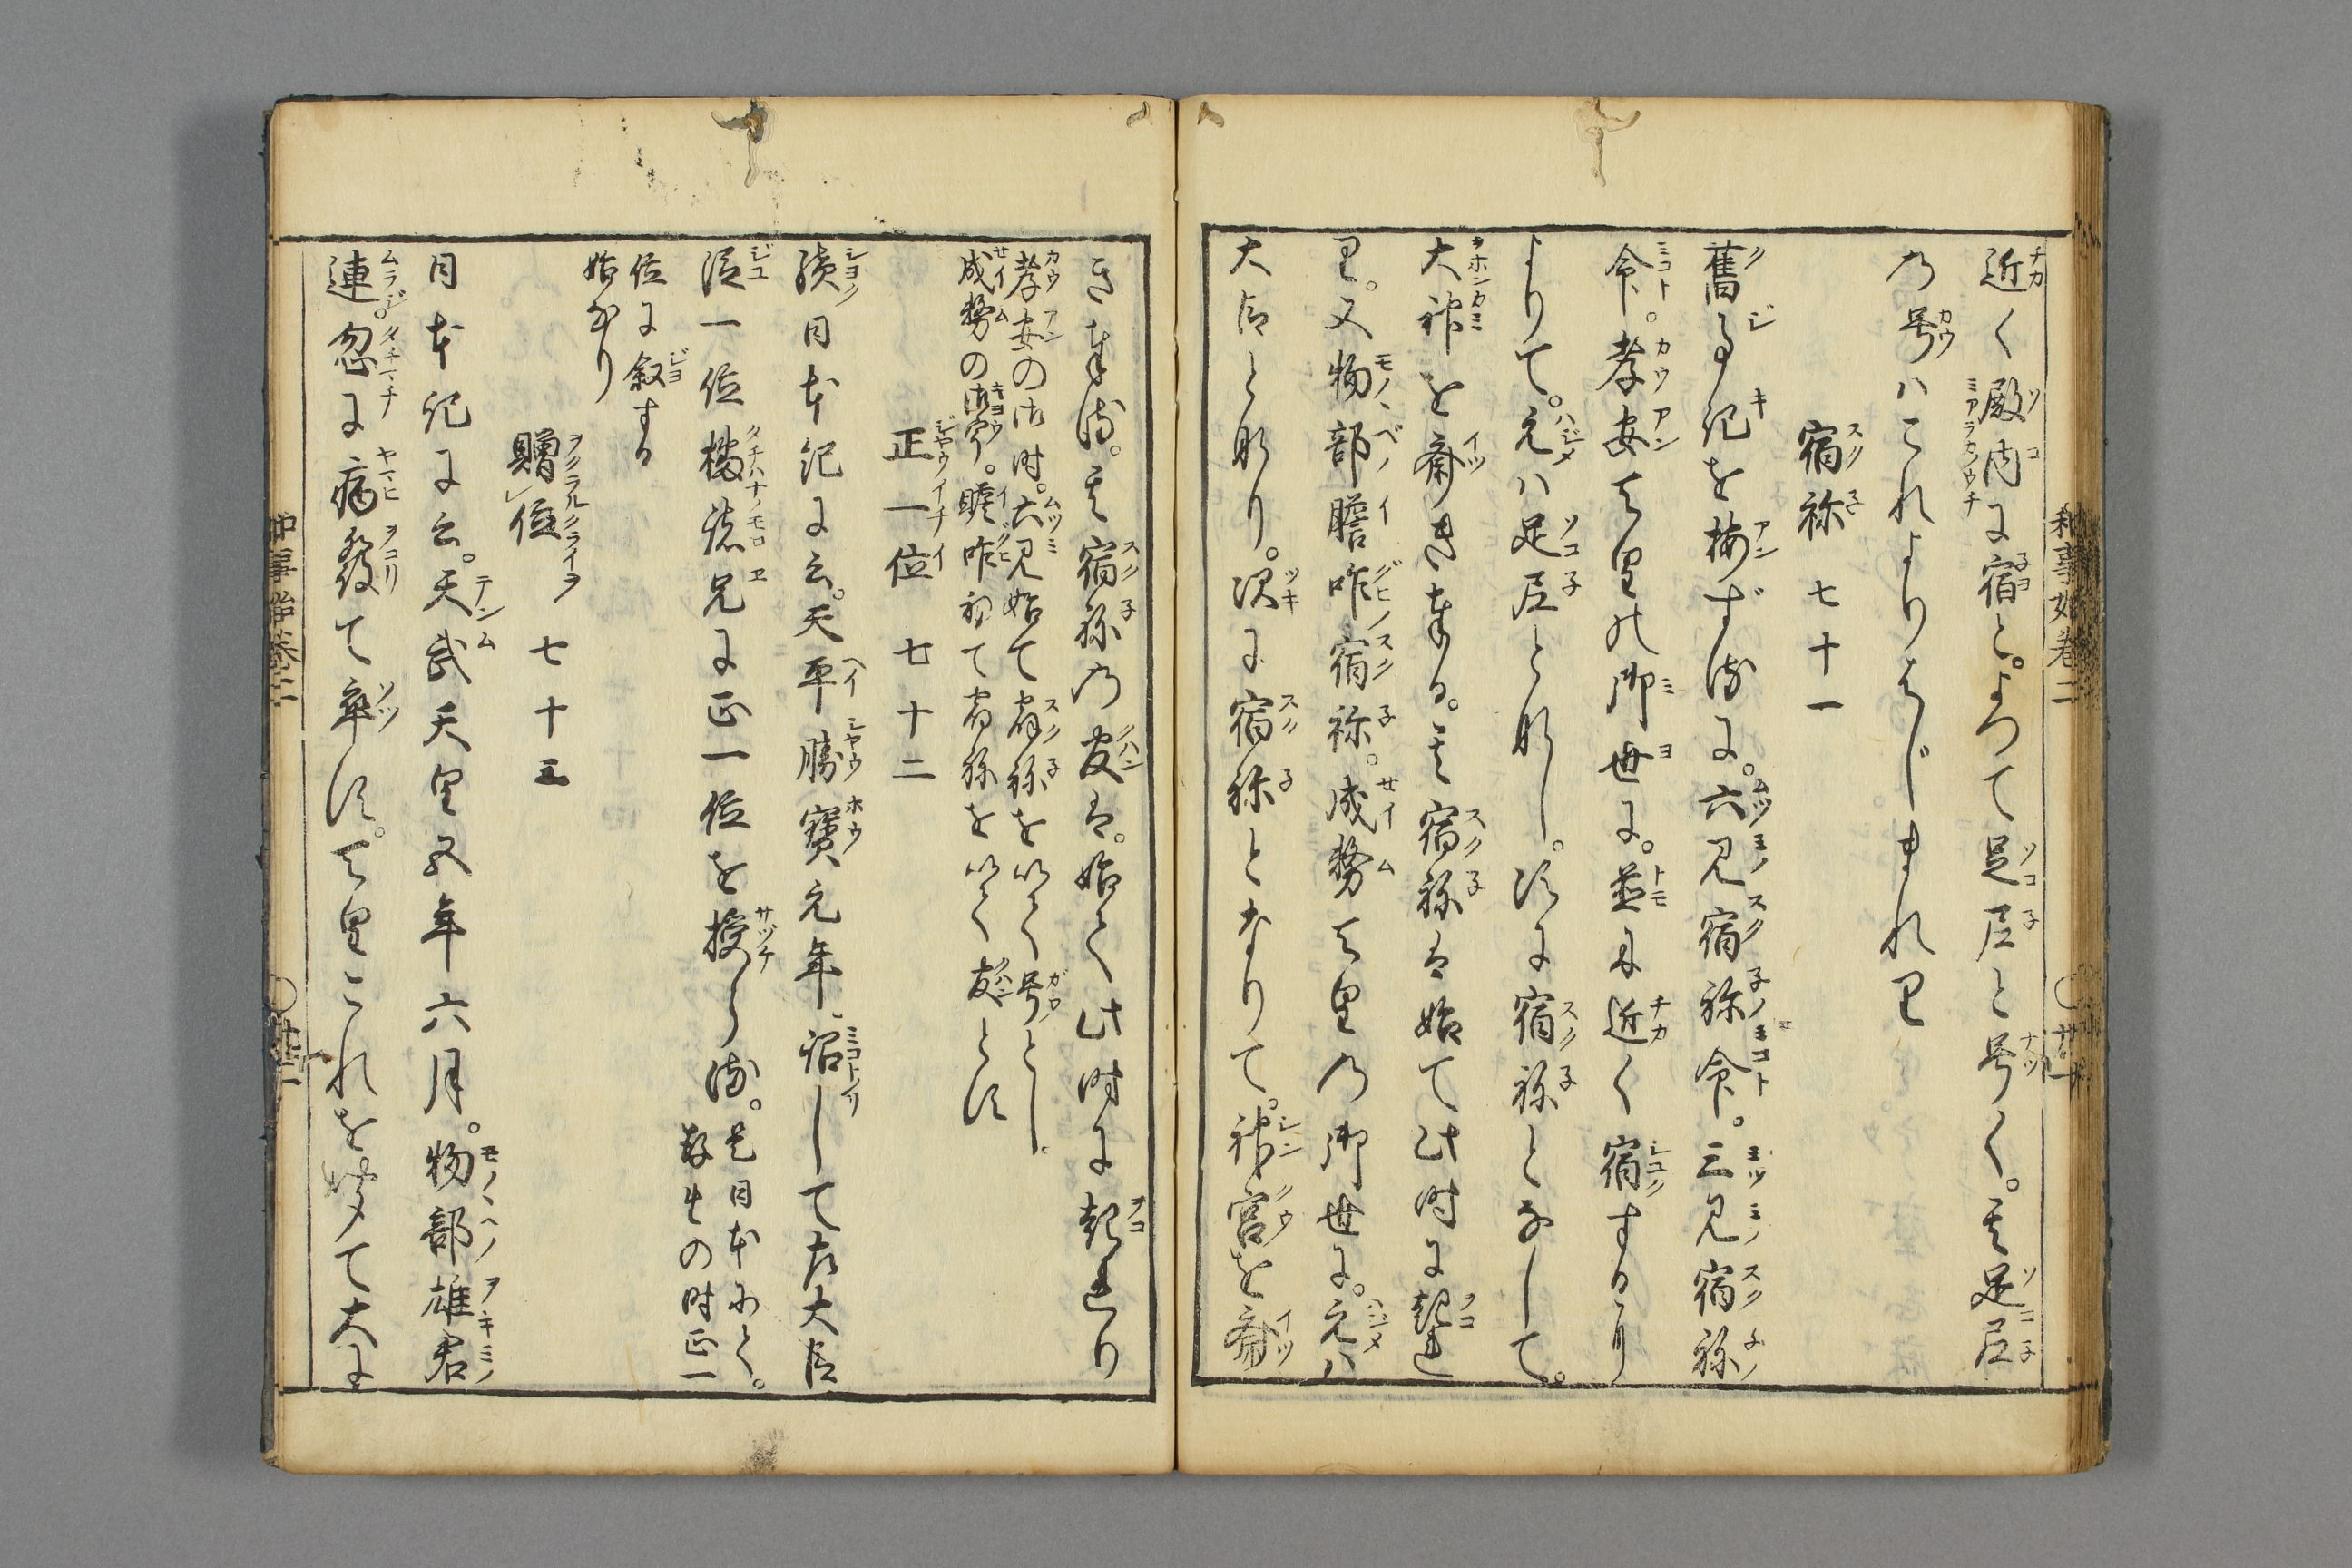 近く殿内に宿と。よつて足尼と号く。其足尼
の号ハこれよりはじまれり
宿祢 七十一
舊事紀を按ずるに。六見宿祢命。三見宿祢
命。孝安天皇の御世に。並に近く宿するに
よりて。元ハ足尼と成し。次に宿祢となして。
大神を齋き奉る。其宿祢は始て此時に起れ
り。又物部膽咋宿祢。成務天皇の御世に。元ハ
大臣と成り。次に宿祢となりて。神宮を齋
き奉る。其宿祢の官は。始て此時に起れり
孝安の御時。六見始て宿祢を以て号とし
成務の御宇。膽咋初て宿祢を以て官とす
正一位 七十二
續日本紀に云。天平勝寶元年。詔して左大臣
従一位橘諸兄に正一位を授らる。是日本にをく。存生の時正一
位に叙する
始なり
贈位 七十三
日本紀に云。天武天皇五年六月。物部雄君
連。忽に病發て卒す。天皇これを聞て大に
和事始巻二
〇廿一